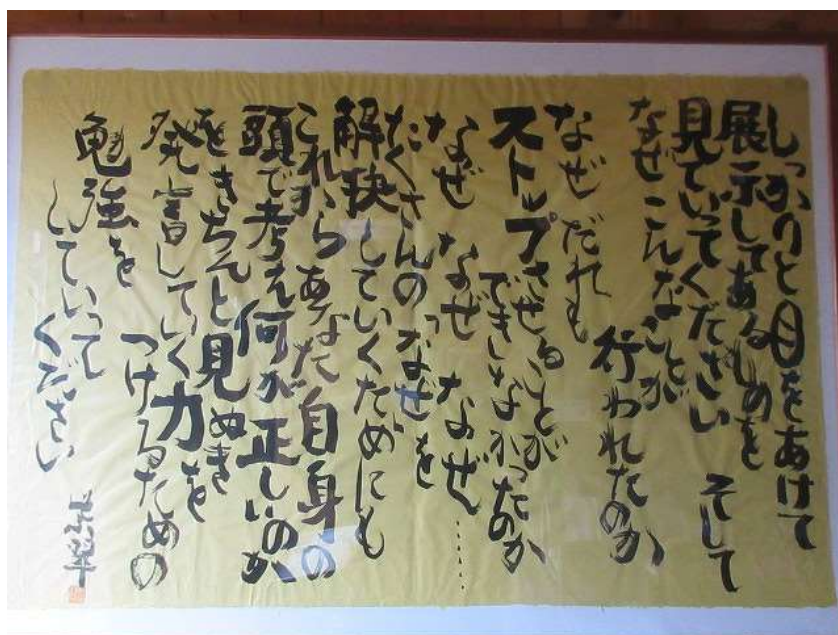 しっかりと目をあけて
展示してあるものを
見ていってください そして
なぜこんなことが
行われたのか
なぜだれも
ストップさせることが
できなかったのか
なぜ なぜ なぜ……
たくさんの"なぜ"を
解決していくためにも
これから あなた自身の
頭で考え何が正しいのか
をきちんと見ぬき
発言していく力を
つけるための
勉強を
していって
ください